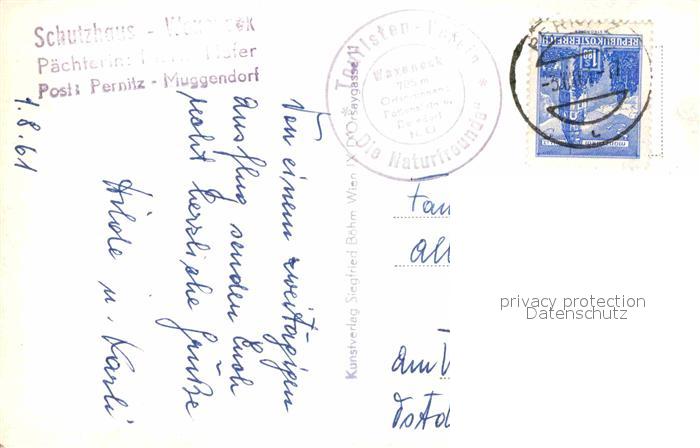 Schutzhaus - Waxeneck
Pächterin: Hofer
Post: Pernitz - Muggendorf
Touristen-Verein
"Die Naturfreunde"
Waxeneck
785 m
Ortsgruppe
N. Ö.
REPUBLIK ÖSTERREICH
1.8.61
Von einem zweitägigen
Ausflug senden Euch
recht herzliche Grüße
Hilde u. Karli
Kunstverlag Siegfried Böhm Wien IX D'Orsaygasse
Fam
All
Am
privacy protection
Datenschutz